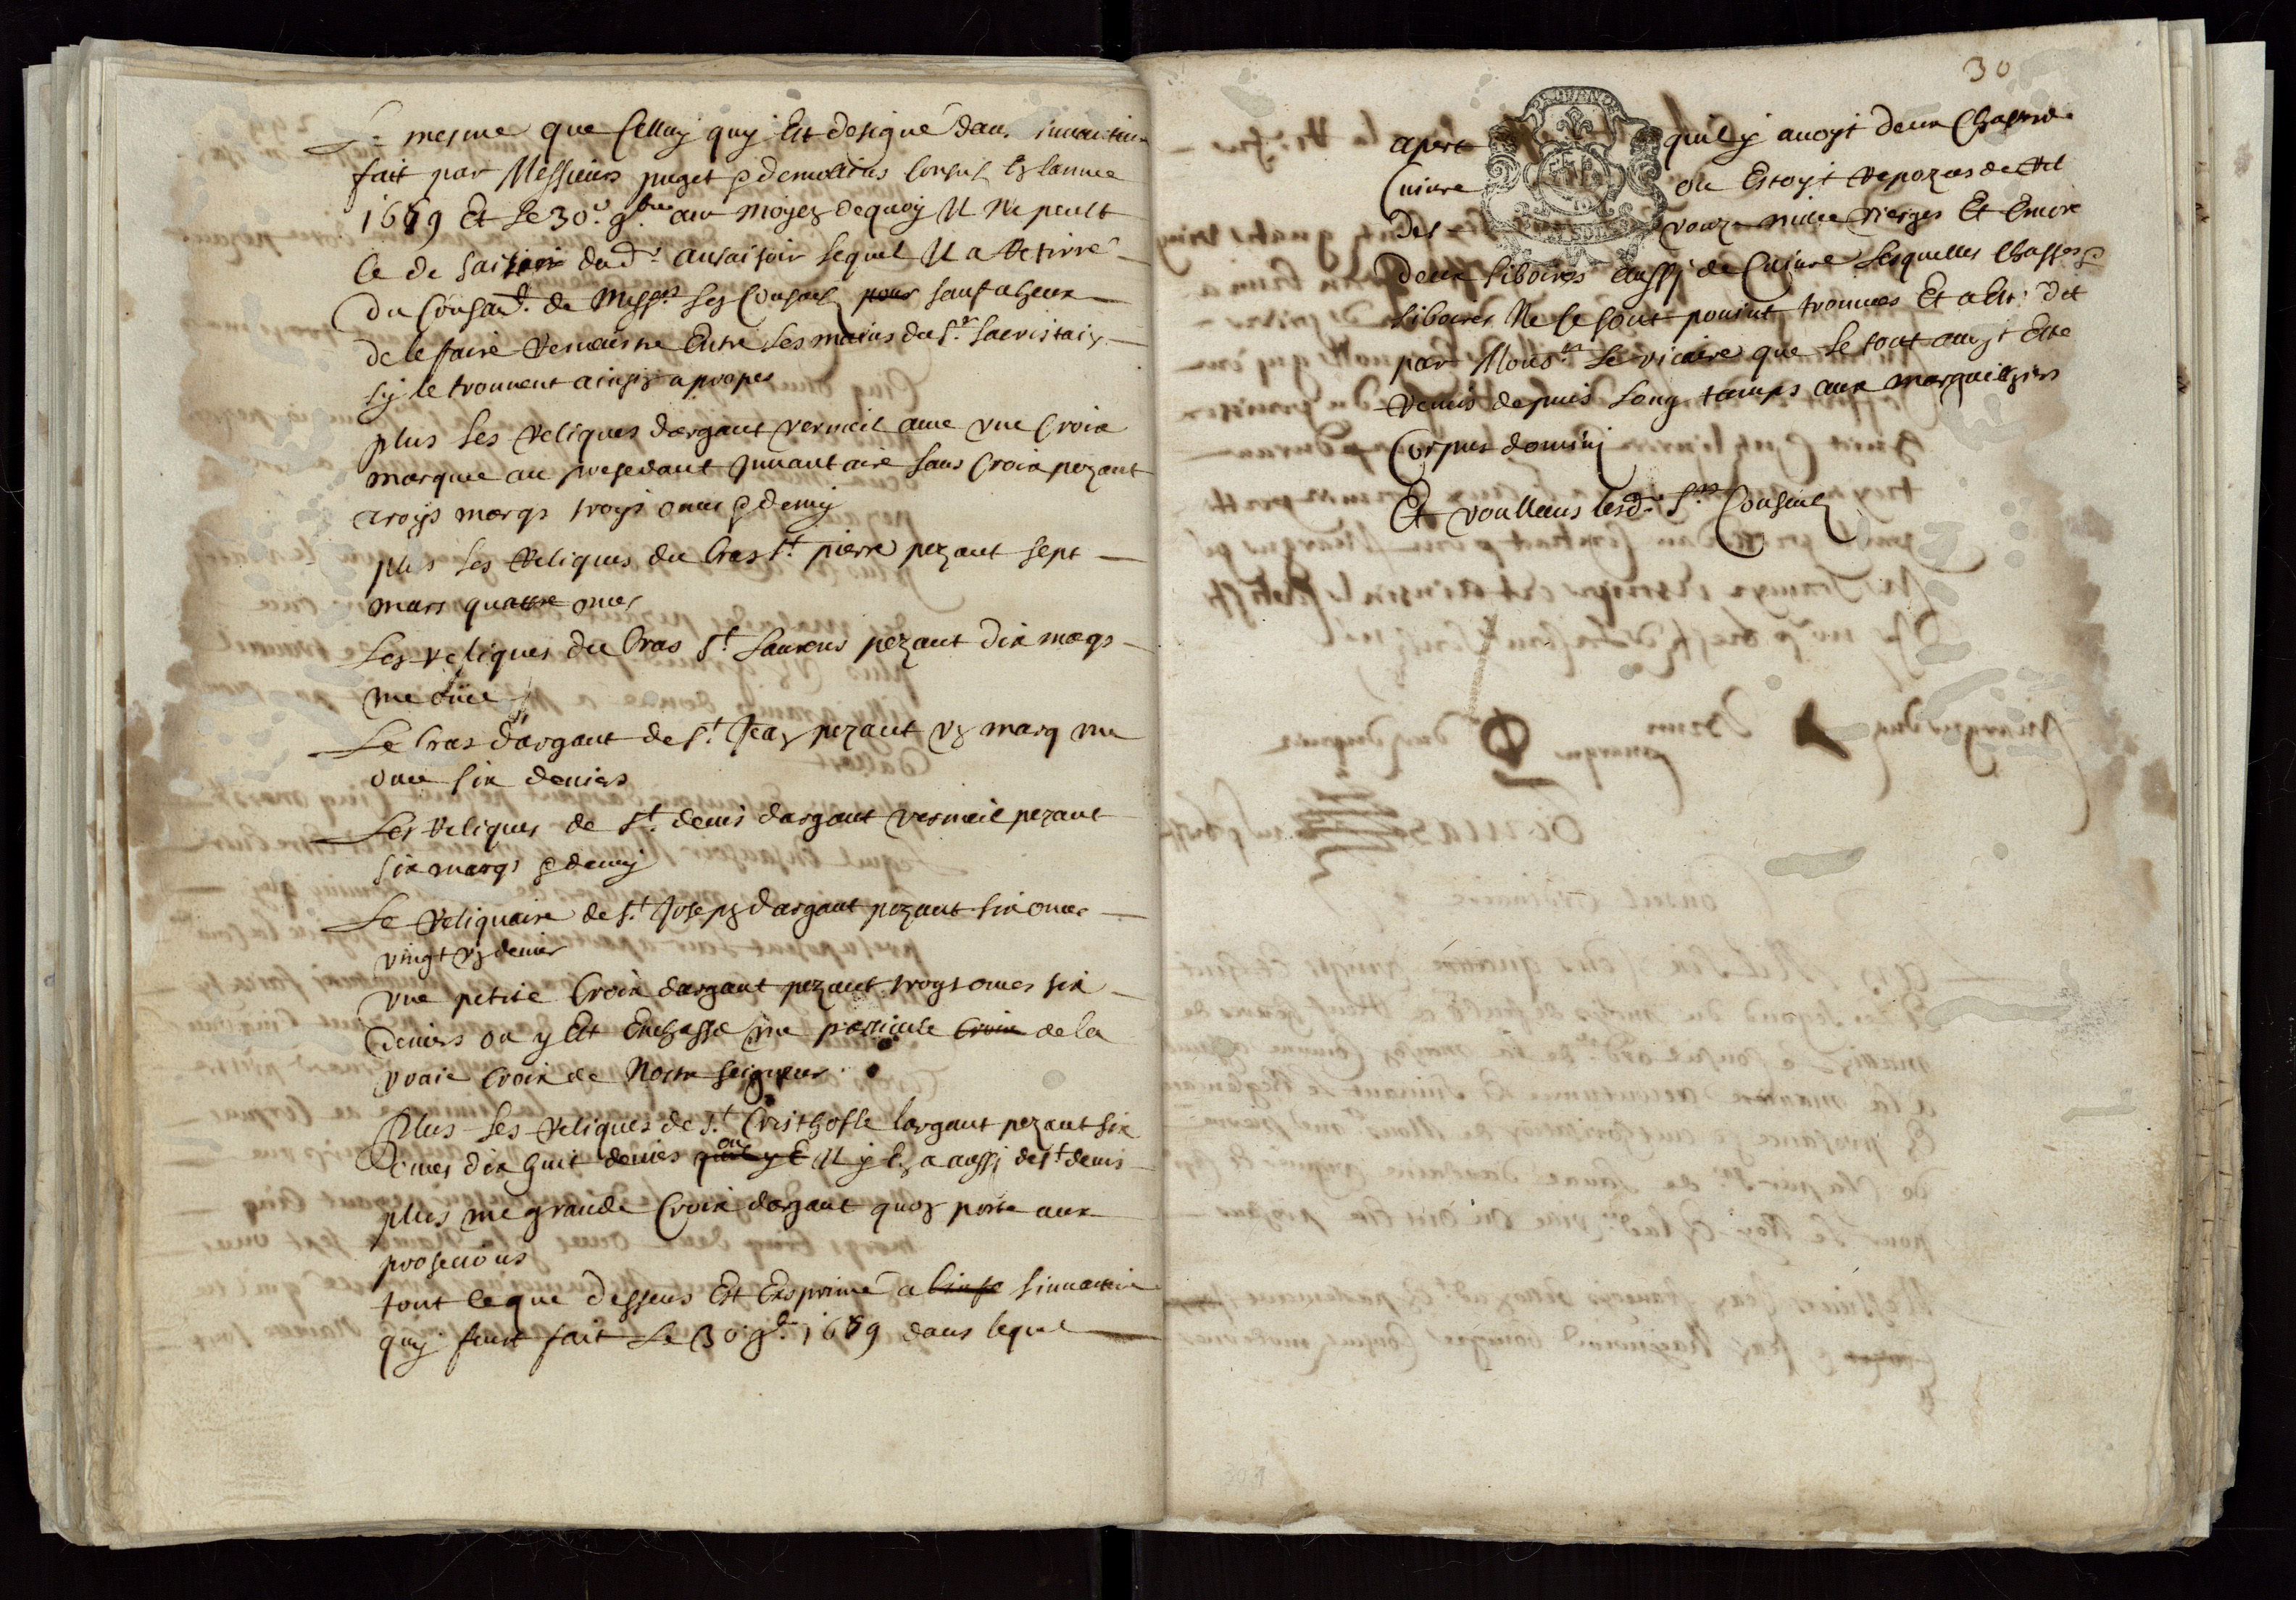 Le mesme que celluy quy Est designé dans
fait par Messieurs puget & Consuls En lannee
1659 Et Le 30e 9bre au moyen de quoy Il Ne peult
ce de saisir dud. ansaisoir lequel Il a Retirré
du Consant. de Messrs les Consuls pour sauf a heux
de le faire Remaistre Entre les mains du Sr. sacristain
sy le trouvent ainsin a propos
plus Les Reliques dargant vermeil avec vne Croix
marquee au presedant Jnvantaire sans Croix pezant
troys marqs troys onces & demy
plus Les Reliques du bras St. pierre pezant sept
marcs quattre onces
Les Reliques du bras St. Laurens pezant dix marqs
vne once
Le bras dargant de St. Jean pezant vn marq vne
once six deniers
Les Reliques de St. denis dargant vermeil pezant
six marqs & demy
Le Reliquaire de St. Joseph dargant pezant six onces
vingt vn denier
vne petite Croix dargant pezant troys onces six
deniers ou y Est Enchassé vne particule Croix de la
vraie Croix de Nostre seigneur
Plus Les Reliques de St. Cristhofle largant pezant six
onces dix huit deniers ou Il y En a aussi de St. denis
plus vne grande Croix dargant quon porte aux
prosecions
tout ce que dessus Est Exprimé a linvantaire
quy feust fait Le 30 9bre 1659 dans lequel
30
apert quil y avoyt deux Chasses de
Cuivre ou Estoyt Repozees
des vonze mille vierges Et Encore
deux siboires aussy de Cuivre Lesquelles Chasses &
siboires Ne se sont pouint trouvees Et a Esté dit
par Monsr. Le vicaire que Le tout avoyt Esté
Remis depuis Long tamps aux marguilhiers
Corpus dominy
Et voullans lesd. Srs Consuls